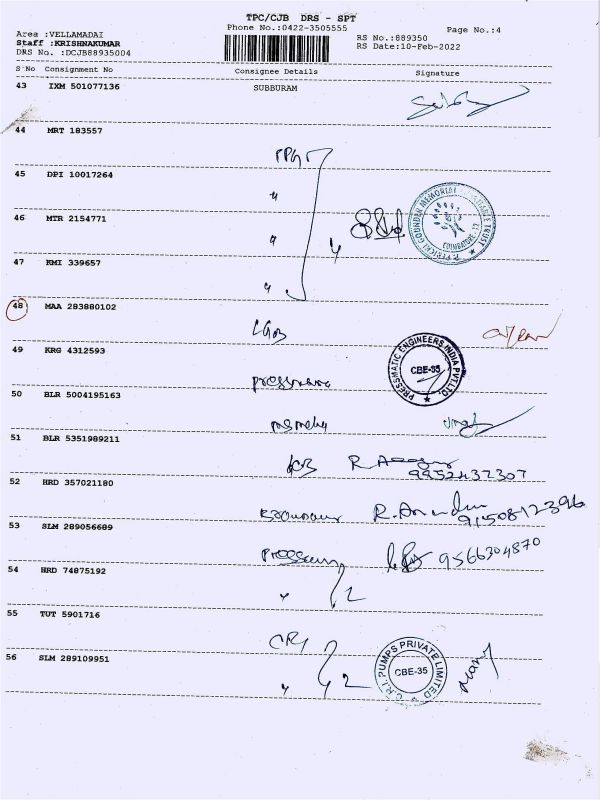 TPC/CJB DRS - SPT
Phone No.:0422-3505555
Page No.:4
Area :VELLAMADAI
Staff :KRISHNAKUMAR
DRS No. :DCJB88935004
RS No.:889350
RS Date:10-Feb-2022
S No Consignment No Consignee Details Signature
43 IXM 501077136 SUBBURAM
44 MRT 183557
PPG
45 DPI 10017264
"
46 MTR 2154771
" 4
PERICHI GOUNDER MEMORIAL TRUST COIMBATORE - 12
47 KMI 339657
"
48 MAA 283880102
LGB
49 KRG 4312593
PRESSMATIC ENGINEERS INDIA PVT.LTD. CBE-35
50 BLR 5004195163
51 BLR 5351989211
9952437307
52 HRD 357021180
9150812396
53 SLM 289056689
9566304870
54 HRD 74875192
" 2
55 TUT 5901716
CRI
56 SLM 289109951
" 2
C.R.I. PUMPS PRIVATE LIMITED CBE-35